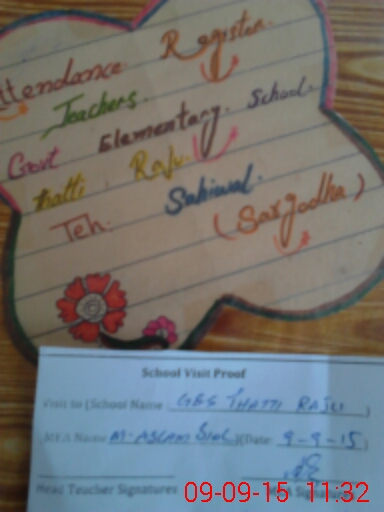 Attendance Register.
Teachers
Govt Elementary. School.
Thatti Raju.
Teh. Sahiwal.
(Sargodha)
School Visit Proof
Visit to (School Name: GES THATTI RAJU )
MEA Name: M. ASLAM )(Date: 9-9-15)
Head Teacher Signatures
09-09-15 11:32